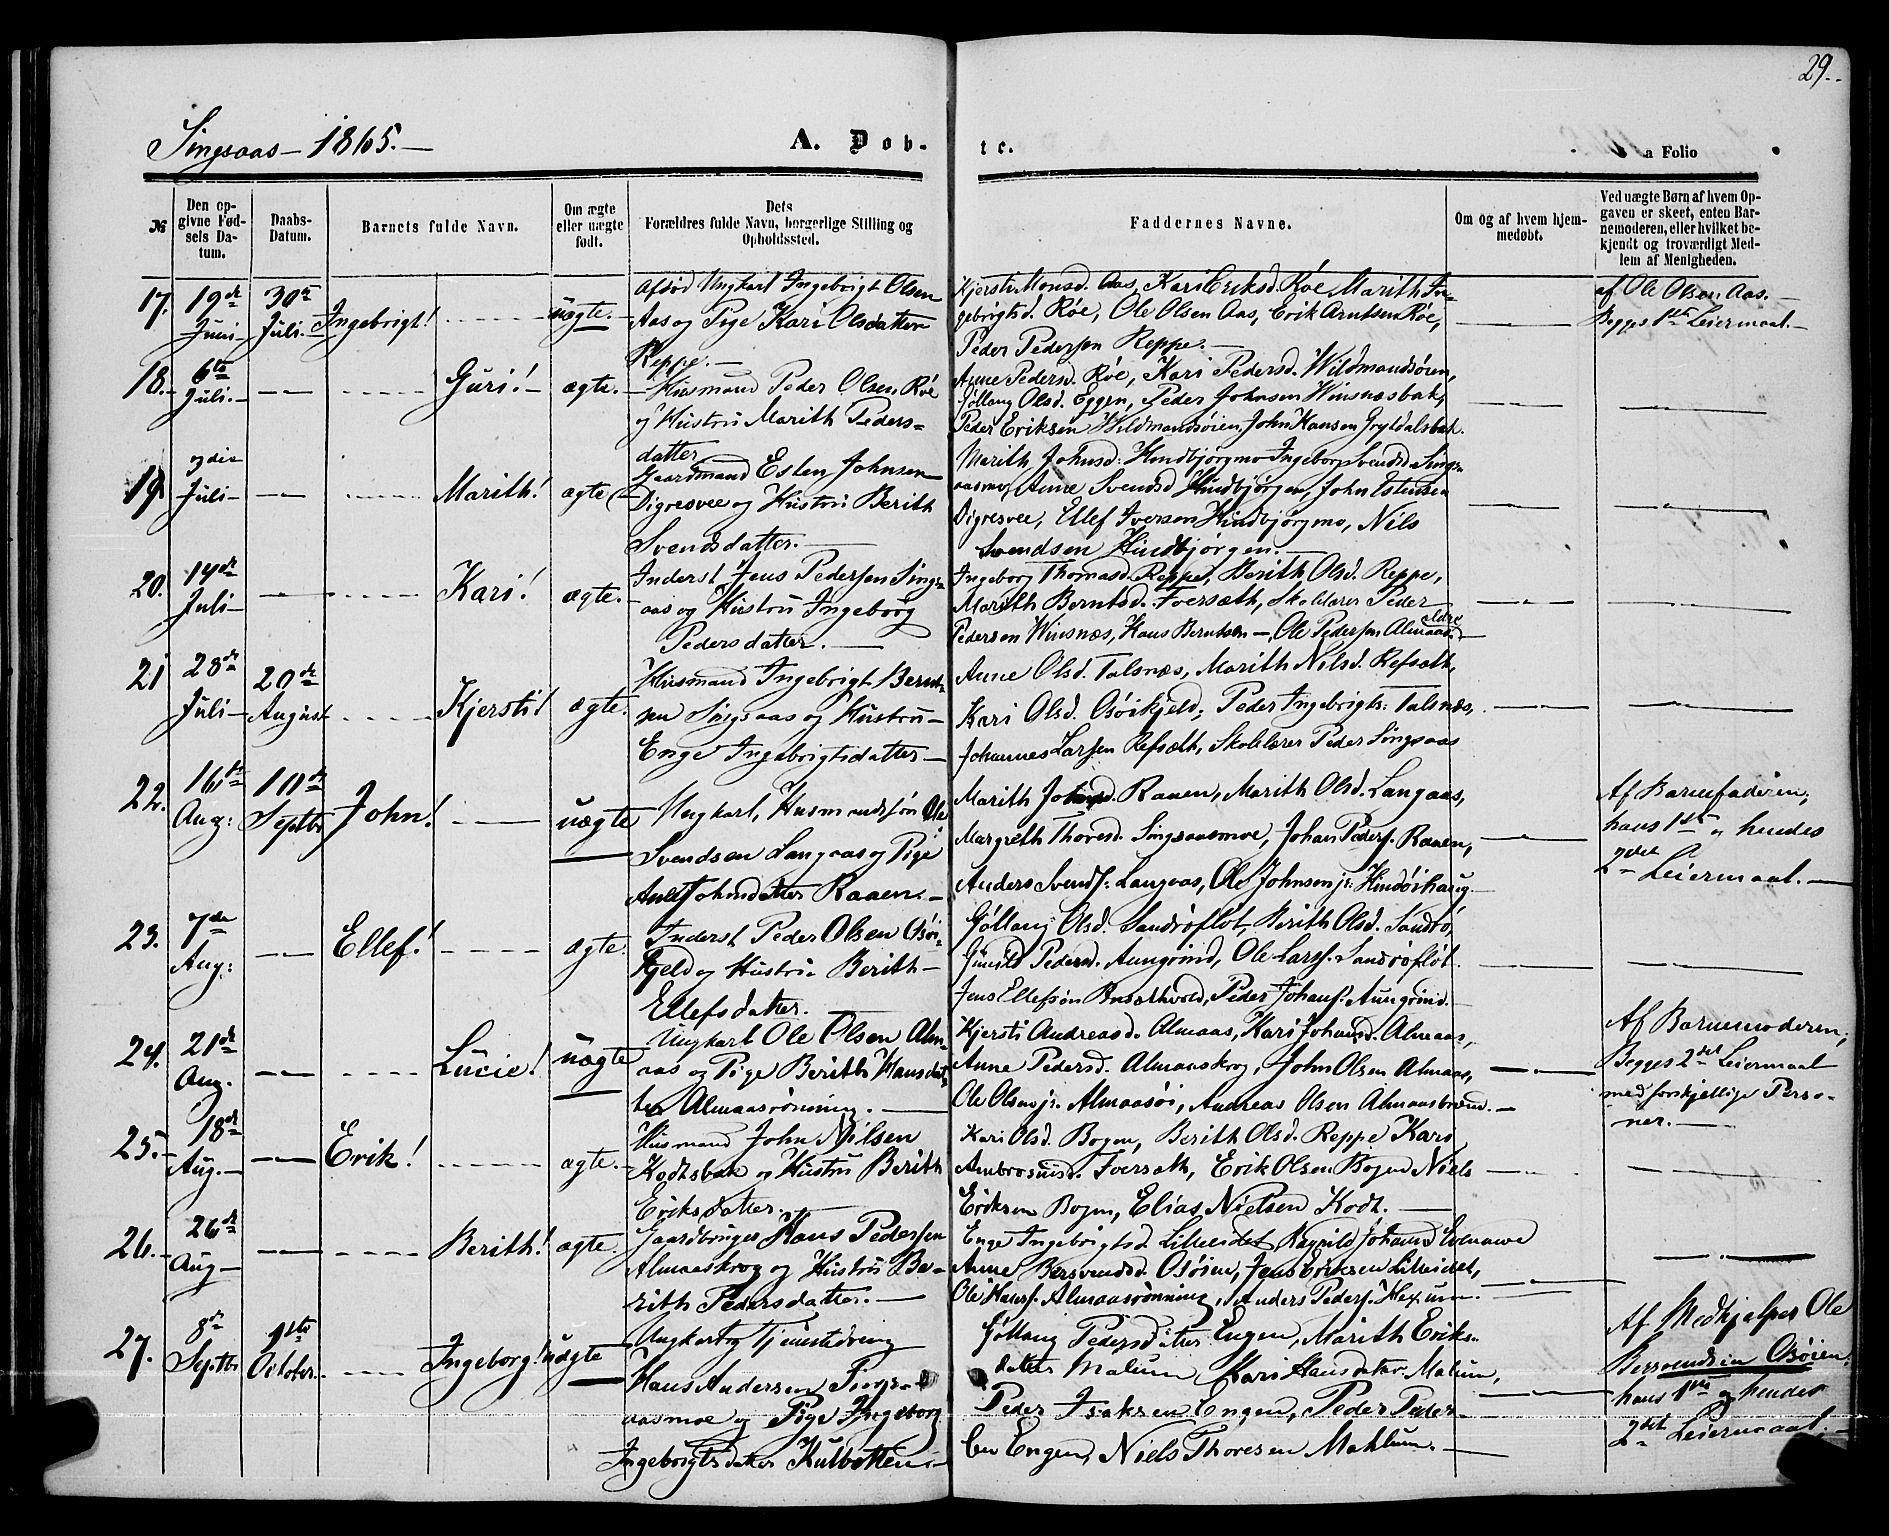 29.
Singsaas – 1865. –
A. Døbte.
Folio
№
Den opgivne Fødsels Datum.
Daabs-Datum.
Barnets fulde Navn.
Om ægte eller uægte født.
Dets Forældres fulde Navn, borgerlige Stilling og Opholdssted.
Faddernes Navne.
Om og af hvem hjemmedøbt.
Ved uægte Børn af hvem Opgaven er skeet, enten Barnemoderen, eller hvilket bekjendt og troværdigt Medlem af Menigheden.
17. 19de Juni 30te Juli Ingebrigt! uægte.
Afdød Ungkarl Ingebrigt Olsen
Aas og Pige Kari Olsdatter
Reppe. –
Kjersti Monsd. Aas, Kari Eriksd. Røe, Marith In-
gebrigtsd. Røe, Ole Olsen Aas, Erik Arntsen Røe,
Peder Pedersen Reppe. –
af Ole Olsen Aas. –
Begges 1ste Leiermaal. –
18. 6te Juli. – Guri! – ægte. –
Husmand Peder Olsen Røe
og Hustru Marith Peders-
datter
Anne Pedersd. Røe, Kari Pedersd. Wildmandsøien,
Gøllaug Olsd. Eggen, Peder Johnsen Winsnæsbak,
Peder Eriksen Wildmandsøien, John Hansen
19. Juli – Marith! ægte
Gaardmand Esten Johnsen
Digresvee og Hustru Berith
Svendsdatter. –
Marith Johnsd. Hindbjørgmo Ingeborg Svendsd Sings-
aasmo, Anne Svendsd Hindbjørgen, John Estensen
Digresvee, Ellef Iversen Hindbjørgmo, Nils
Svendsen Hindbjørgen. –
20. 14de Juli – Kari! ægte.
Inderst Jens Pedersen Sings-
aas og Hustru Ingeborg
Pedersdatter. –
Ingeborg Thomasd. Reppe, Berith Olsd. Reppe,
Marith Berntsd. Forsæth, Skolelærer Peder
Pedersen Winsnæs, Hans Berntsen –, Ole Pedersen Almaas ældre –
21 28de Juli – 20de August Kjersti! ægte.
Husmand Ingebrigt Bernt-
sen Singsaas og Hustru –
Enge Ingebrigtsdatter –
Anne Olsd. Talsnæs, Marith Nilsd. Refsæth,
Kari Olsd. Osøikjeld, Peder Ingebrigts. Talsnæs,
Johannes Larsen Refsæth, Skolelærer Peder Singsaas
22. 16de Aug: 10de Septbr John! – uægte
Ungkarl, Husmandssøn Ole
Svendsen Langaas og Pige
Ane Johnsdatter Raaen. –
Marith Johnsd. Raaen, Marith Olsd. Langaas,
Margreth Thoresd. Singsaasmoe, Johan Peders. Raaen,
Anders Svends: Langaas, Ole Johnsen jr: Hindørhaug. –
Af Barnefaderen,
hans 1ste og hendes
2det Leiermaal. –
23. 7de Aug: Ellef! ægte.
Inderst Peder Olsen Osøi-
kjeld og Hustru Berith –
Ellefsdatter.
Gøllaug Olsd. Sandrøflot, Berith Olsd. Sandrø,
Gunild Pedersd. Aungrind, Ole Larss. Sandrøflot.
Jens Ellefsøn, Peder Johans. Aungrind. –
24. 21de Aug. Lucie! uægte
Ungkarl Ole Olsen Alm-
aas og Pige Berith Hansdat-
ter Almaasrønning. –
Kjersti Andreasd. Almaas, Kari Johansd. Almaas,
Anne Pedersd. Almaaskrog, John Olsen Almaas,
Ole Olsen jr. Almaasøi, Andreas Olsen. –
Af Barnemoderen;
Begges 2det Leiermaal
med forskjellige Perso-
ner. –
25. – 18de Aug. – Erik! ægte. –
Husmand John Nilsen
Kothsbak og Hustru Berith
Eriksdatter. –
Kari Olsd. Bogen, Berith Olsd. Reppe Kari
Ambrosiusd. Forsæth, Erik Olsen Bogen Niels
Eriksen Bogen, Elias Nielsen Kodt. –
26. – 26de Aug – Berith! ægte.
Gaardbruger Hans Pedersen
Almaaskrog og Hustru Be-
rith Pedersdatter. –
Enge Ingebrigtsd. Lilleeidet, Ragnild Johansd
Anne Bersvendsd. Osøien, Jens Eriksen Lilleidet,
Ole Hans. Almaasrønning, Anders Peders. Hexum –
27. 8de Septbr 1ste October Ingeborg! uægte
Ungkarl og Tjenestedreng
Hans Andersen Sings-
aasmoe og Pige Ingeborg
Ingebrigtsdatter Kulbotten –
Gøllaug Pedersdatter Engen, Marith Eriks-
datter Malum, Kari Hansdatter Malum,
Peder Isaksen Engen, Peder Peder-
sen Engen, Niels Thoresen Mahlum. –
Af Medhjelper Ole
Bersvendsen Osøien,
hans 1ste og hendes
2det Leiermaal. –